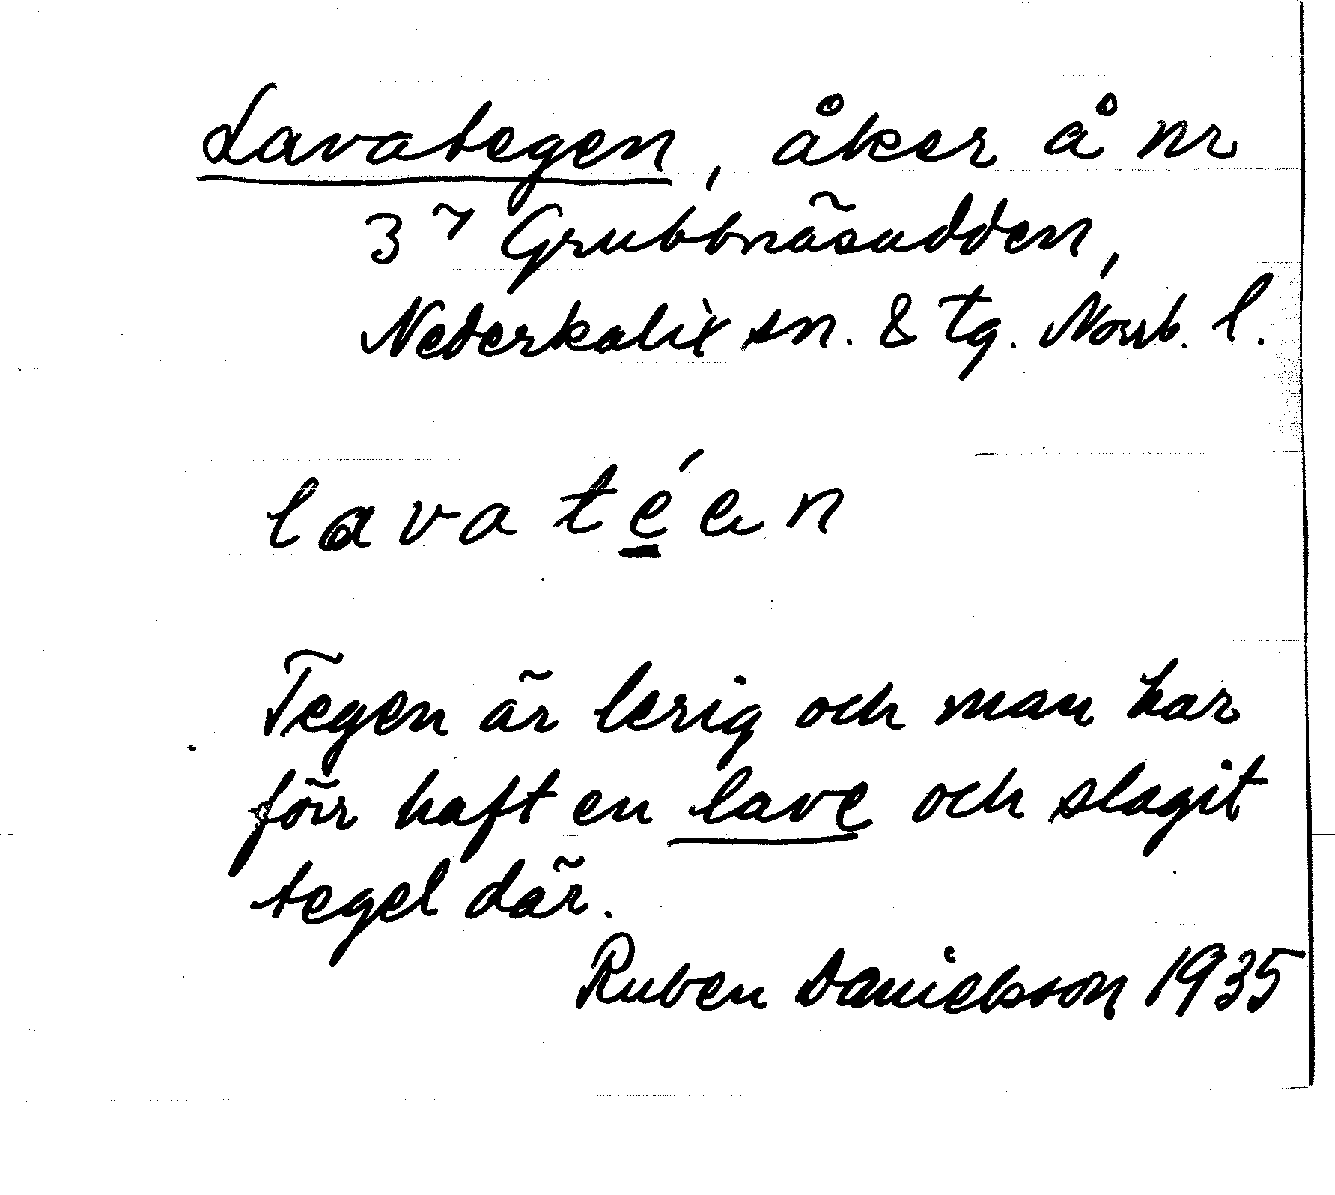 Lavategen, åker å nr
3⁷ Grubbnäsudden,
Nederkalix sn. & tg. Norrb. l.
lavatéen
Tegen är lerig och man har
förr haft en lave och slagit
tegel där.
Ruben Danielsson 1935